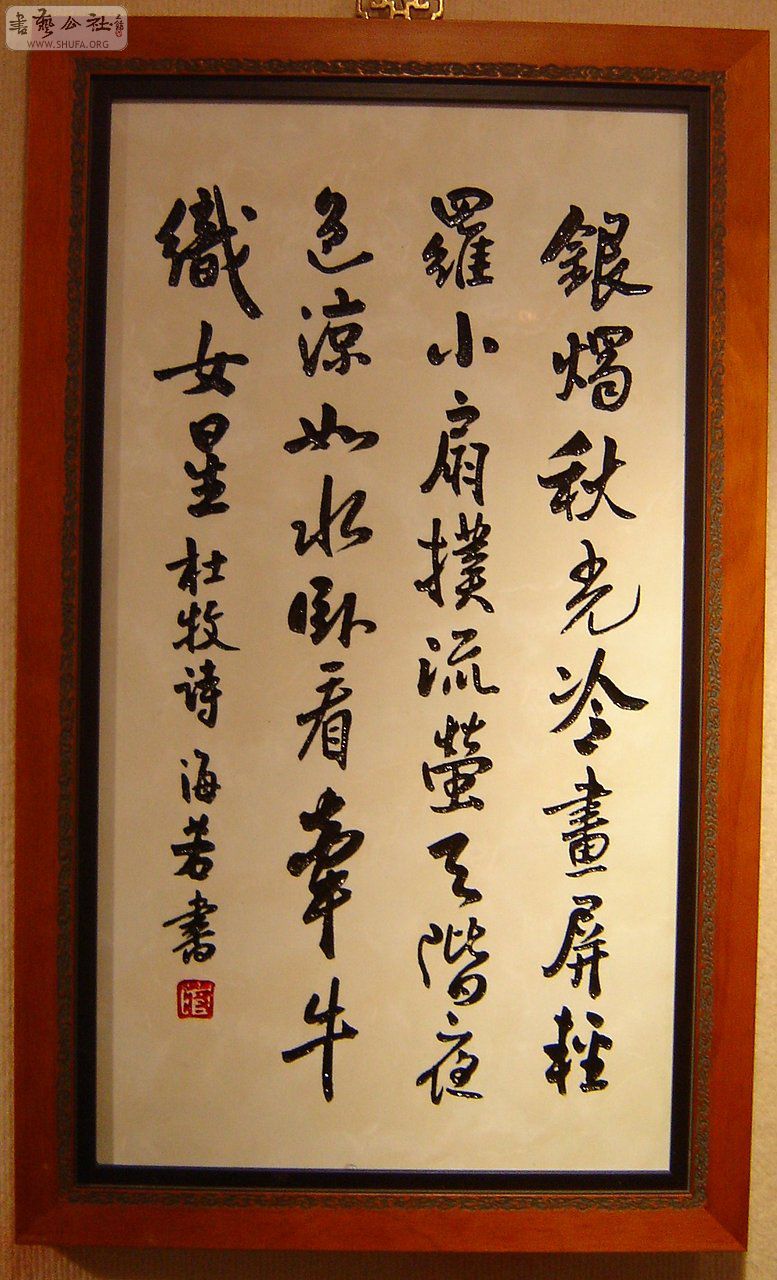 銀燭秋光冷畫屏輕
羅小扇撲流螢天階夜
色涼如水臥看牽牛
織女星 杜牧诗 海若書
書藝公社
WWW.SHUFA.ORG